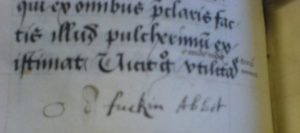 qui ex omnibus p̄claris fac-
tis illud pulcherimū ex
istimat Uicit g̊ utilitas
O d fuckin Abbot